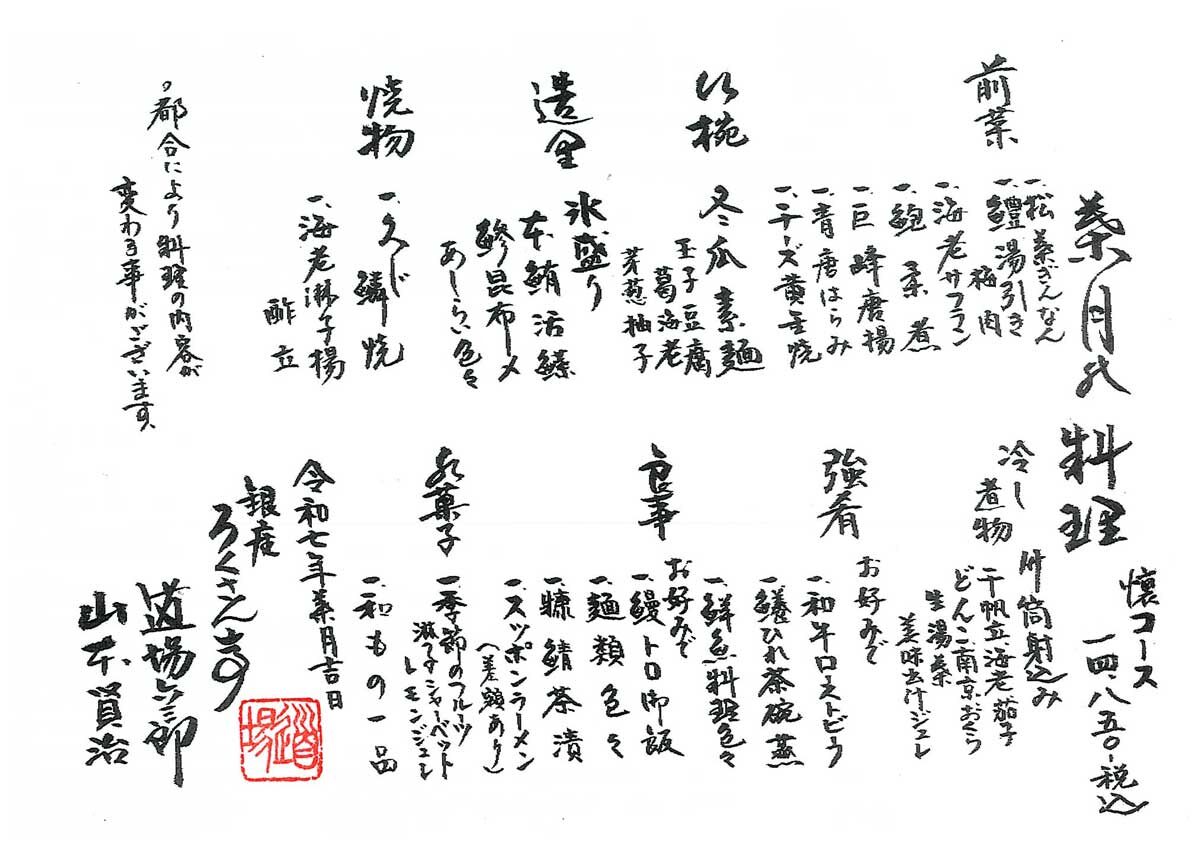 葉月の料理
懐コース
一四、八五〇-税込
前菜
一、松葉ぎんなん
一、鱧湯引き
梅肉
一、海老サフラン
一、鮑柔煮
一、巨峰唐揚
一、青唐はらみ
一、チーズ黄金焼
吸椀
冬瓜素麺
玉子豆腐
葛海老
芽葱柚子
造里
氷盛り
本鮪活鱶
鯵昆布〆
あしらい色々
焼物
一、久じ鱗焼
一、海老湯葉揚
酢立
〇都合により料理の内容が
変わる事がございます。
冷し煮物
竹筒射込み
干帆立、海老茄子
どんこ、南京、おくら
生湯葉
美味出汁ジュレ
強肴
お好みで
一、和牛ローストビーフ
一、鱶ひれ茶碗蒸
一、鮮魚料理色々
食事
お好みで
一、鰻トロ御飯
一、麺類色々
一、糠鯖茶漬
一、スッポンラーメン
(差額あり)
水菓子
一、季節のフルーツ
滋味シャーベット
レモンジュレ
一、和もの一品
令和七年葉月吉日
銀座
ろくさん亭
道場六三郎
山本賢治
道場